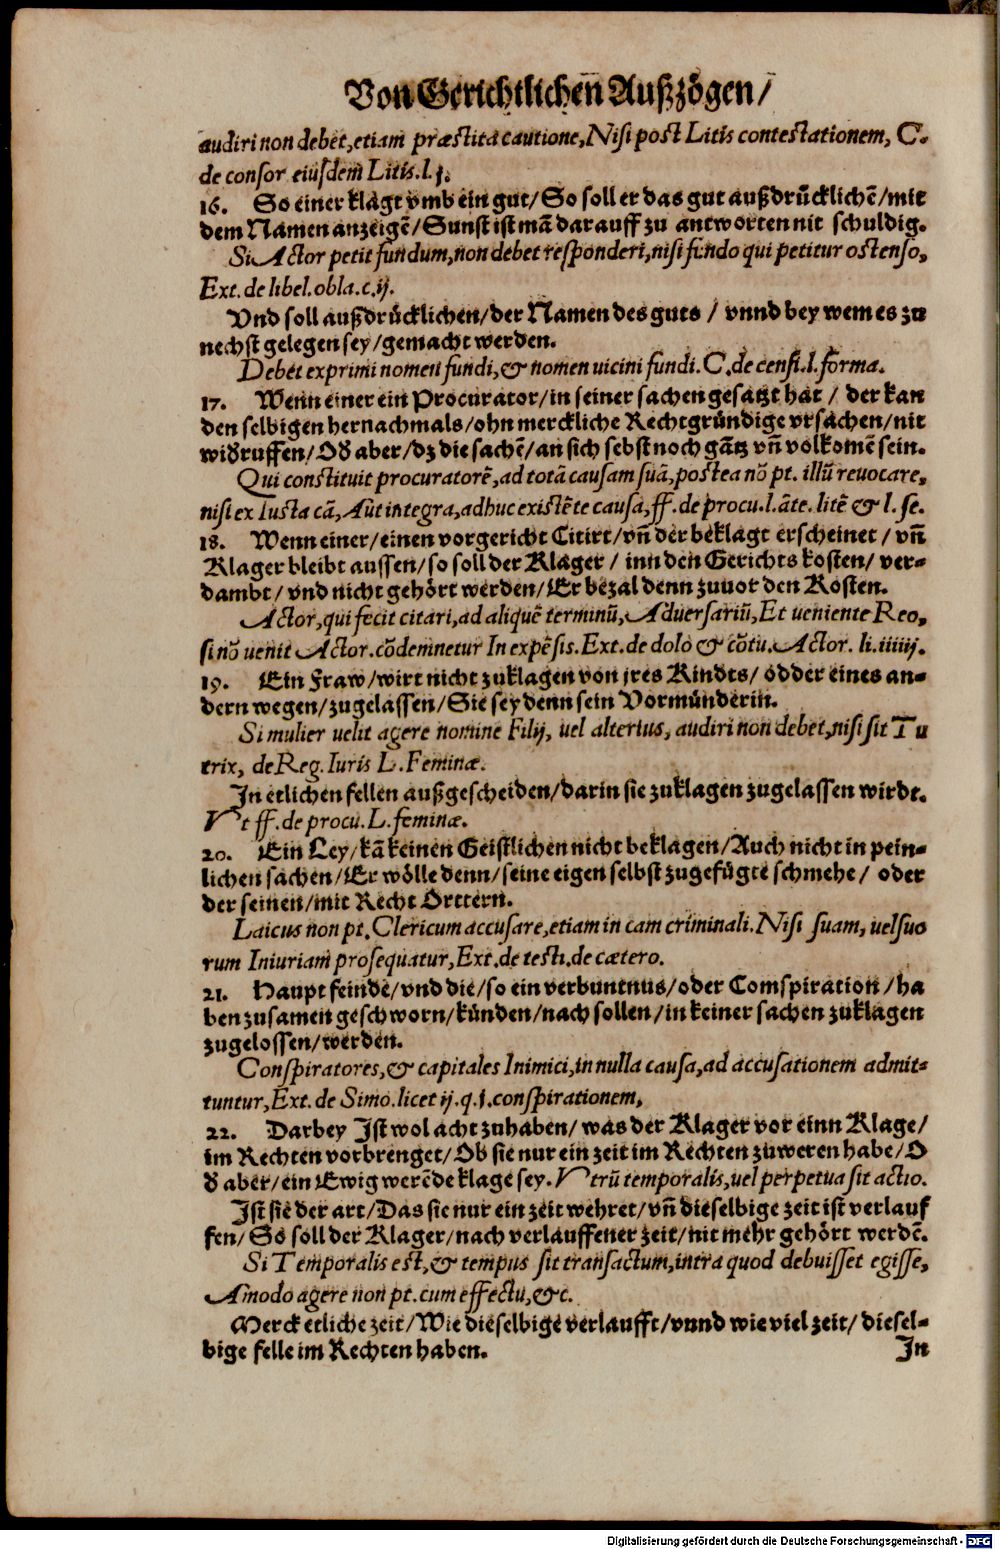 Von Gerichtlichenn Außzögen/
audiri non debet, etiam præstita cautione, Nisi post Litis contestationem, C.
de consor eiusdem Litis. l. j.
16. So einer klagt vmb ein gut/ So soll er das gut außdrücklichē/ mit
dem Namen anzeigē/ Sunst ist mā darauff zu antworten nit schuldig.
Si Actor petit fundum, non debet responderi, nisi fundo qui petitur ostenso,
Ext. de libel. obla. c. ij.
Vnd soll außdrücklichen/ der Namen des guts / vnnd bey wem es zu
nechst gelegen sey/ gemacht werden.
Debet exprimi nomen fundi, & nomen uicini fundi. C. de censi. l. forma.
17. Wenn einer ein Procurator/ in seiner sachen gesatzt hat / der kan
den selbigen hernachmals/ ohn merckliche Rechtgründige vrsachen/ nit
widruffen/ Od aber/ dz die sachē/ an sich sebst noch gātz vn̄ volkomē sein.
Qui constituit procuratorē, ad totā causam suā, postea nō pt. illū reuocare,
nisi ex Iusta cā, Aut integra, adhuc existēte causa, ff. de procu. l. āte. litē & l. se.
18. Wenn einer/ einen vorgericht Citirt/ vn̄ der beklagt erscheinet / vn̄
Klager bleibt aussen/ so soll der Klager / inn den Gerichts kosten/ ver-
dambt/ vnd nicht gehört werden/ Er bezal denn zuuor den Kosten.
Actor, qui fecit citari, ad aliquē terminū, Aduersariū, Et ueniente Reo,
si nō uenit Actor. cōdemnetur In expēsis. Ext. de dolo & cōtu. Actor. li. iiiiij.
19. Ein Fraw/ wirt nicht zuklagen von jres Kindts/ odder eines an-
dern wegen/ zugelassen/ Sie sey denn sein Vormünderin.
Si mulier uelit agere nomine Filij, uel alterius, audiri non debet, nisi sit Tu
trix, de Reg. Iuris L. Feminæ.
In etlichen fellen außgescheiden/ darin sie zuklagen zugelassen wirdt.
Vt ff. de procu. L. feminæ.
20. Ein Ley/ kā keinen Geistlichen nicht beklagen/ Auch nicht in pein-
lichen sachen/ Er wölle denn/ seine eigen selbst zugefügte schmehe/ oder
der seinen/ mit Recht Orttern.
Laicus non pt. Clericum accusare, etiam in cam criminali. Nisi suam, uel suo
rum Iniuriam prosequatur, Ext. de testi. de cætero.
21. Haupt feinde/ vnd die/ so ein verbuntnus/ oder Comspiration / ha
ben zusamen geschworn/ künden/ nach sollen/ in keiner sachen zuklagen
zugelossen/ werden.
Conspiratores, & capitales Inimici, in nulla causa, ad accusationem admit-
tuntur, Ext. de Simo. licet ij. q. j. conspirationem,
22. Darbey Ist wol acht zuhaben/ was der Klager vor einn Klage/
im Rechten vorbrenget/ Ob sie nur ein zeit im Rechten zuweren habe/ O
d aber/ ein Ewig werēde klage sey. Vtrū temporalis, uel perpetua sit actio.
Ist sie der art/ Das sie nur ein zeit wehret/ vn̄ dieselbige zeit ist verlauf
fen/ So soll der Klager/ nach verlauffener zeit/ nit mehr gehört werdē.
Si Temporalis est, & tempus sit transactum, intra quod debuisset egisse,
Amodo agere non pt. cum effectu, &c.
Merck etliche zeit/ Wie dieselbige verlaufft/ vnnd wie viel zeit/ diesel-
bige felle im Rechten haben.
In
Digitalisierung gefördert durch die Deutsche Forschungsgemeinschaft - DFG